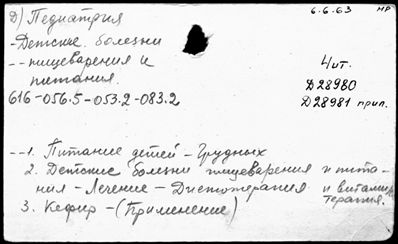 Д) Педиатрия
6.6.63 нр
- Детские болезни
-- пищеварения и
питания.
616-056.5-053.2-083.2
Чит.
D28980
D28981 прил.
-- 1. Питание детей - Грудных
2. Детские болезни пищеварения и пита-
ния - Лечение - Диетотерапия и витамин
терапия.
3. Кефир - (Применение)